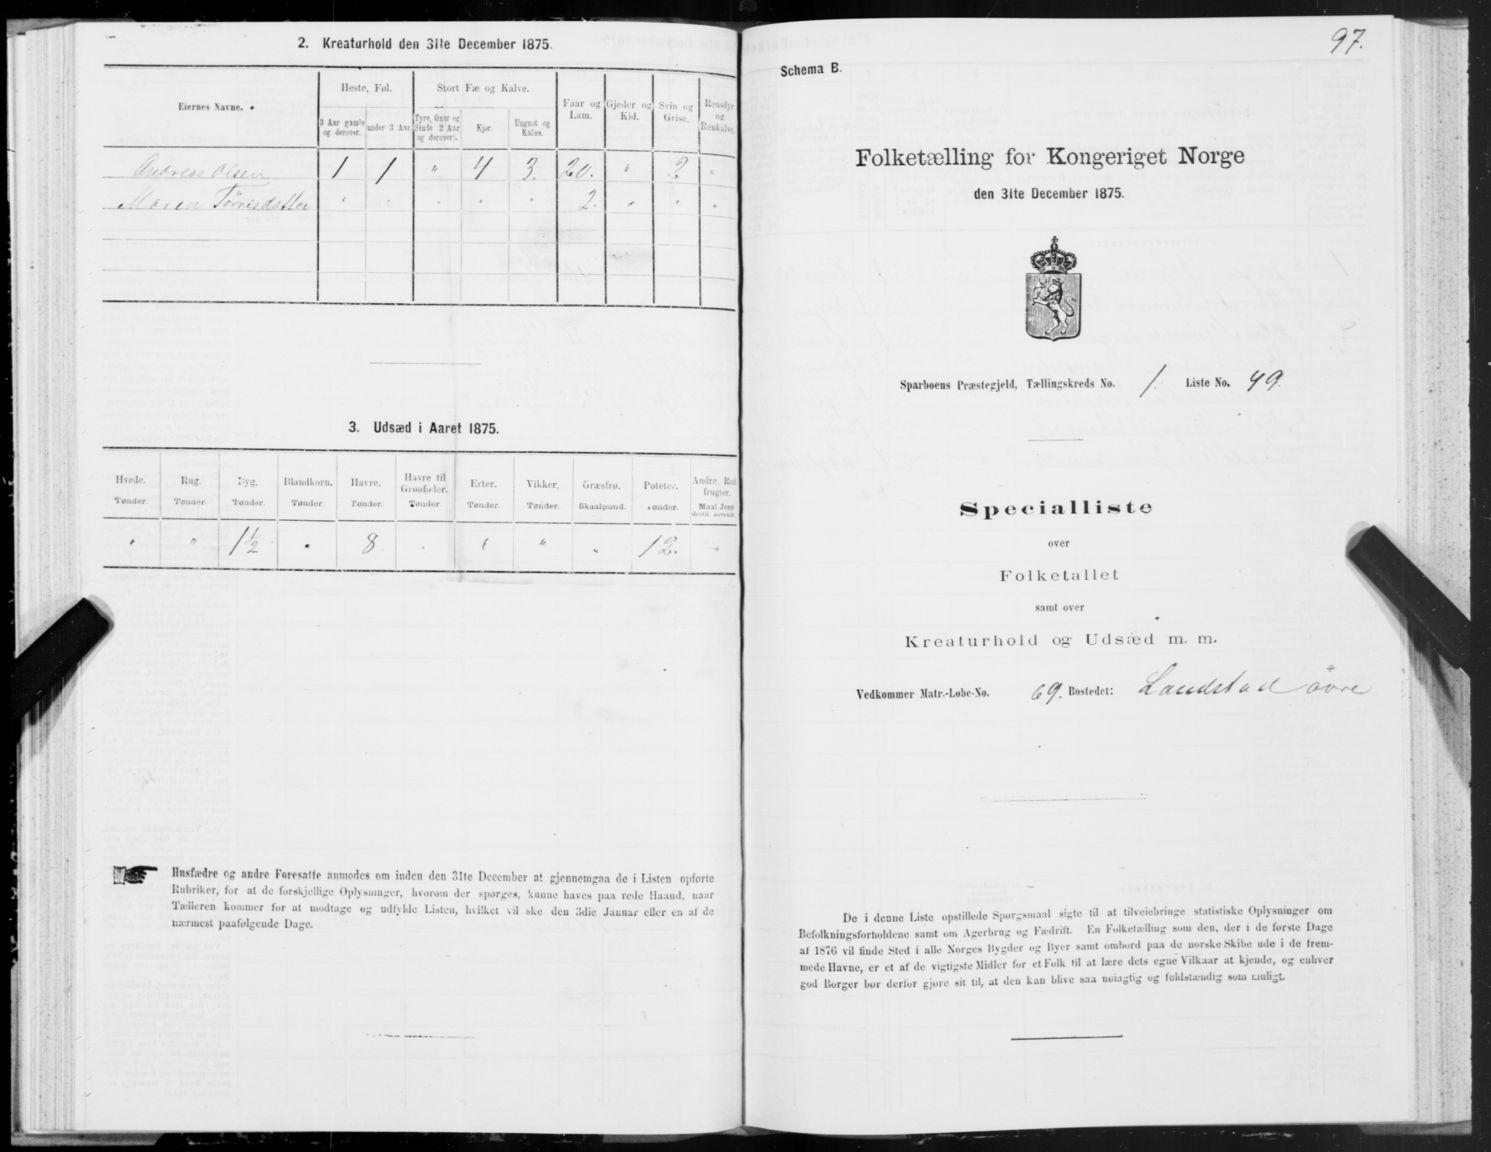 2. Kreaturhold den 31te December 1875.
Eiernes Navne.
Heste, Føl.
Stort Fæ og Kalve.
Faar og Lam.
Gjeder og Kid.
Svin og Grise.
Rensdyr og Renkalve.
3 Aar gamle og derover.
under 3 Aar.
Tyre, Oxer og Stude 2 Aar og derover).
Kjør.
Ungnøt og Kalve.
Andreas Olsen 1 1 " 4 3. 20. " 2 "
Maren Tørrisdatter " " " " " 2. " " "
3. Udsæd i Aaret 1875.
Hvede. Rug. Byg. Blandkorn. Havre. Havre til Grønfoder. Erter. Vikker. Græsfrø. Poteter. Andre Rodfrugter.
Tønder. Tønder. Tønder. Tønder. Tønder. Tønder. Tønder. Tønder. Skaalpund. Tønder. Maal Jord dertil anvendt.
" " 1 1/2 " 8 " " " " 12. "
Husfædre og andre Foresatte anmodes om inden den 31te December at gjennemgaa de i Listen opførte
Rubriker, for at de forskjellige Oplysninger, hvorom der spørges, kunne haves paa rede Haand, naar
Tælleren kommer for at modtage og udfylde Listen, hvilket vil ske den 3die Januar eller en af de
nærmest paafølgende Dage.
97.
Schema B.
Folketælling for Kongeriget Norge
den 31te December 1875.
Sparboens Præstegjeld, Tællingskreds No. 1. Liste No. 49.
Specialliste
over
Folketallet
samt over
Kreaturhold og Udsæd m. m.
Vedkommer Matr.-Løbe-No. 69. Bostedet: Landstad övre
De i denne Liste opstillede Spørgsmaal sigte til at tilveiebringe statistiske Oplysninger om
Befolkningsforholdene samt om Agerbrug og Fædrift. En Folketælling som den, der i de første Dage
af 1876 vil finde Sted i alle Norges Bygder og Byer samt ombord paa de norske Skibe ude i de frem-
mede Havne, er et af de vigtigste Midler for et Folk til at lære dets egne Vilkaar at kjende, og enhver
god Borger bør derfor gjøre sit til, at den kan blive saa nøiagtig og fuldstændig som muligt.